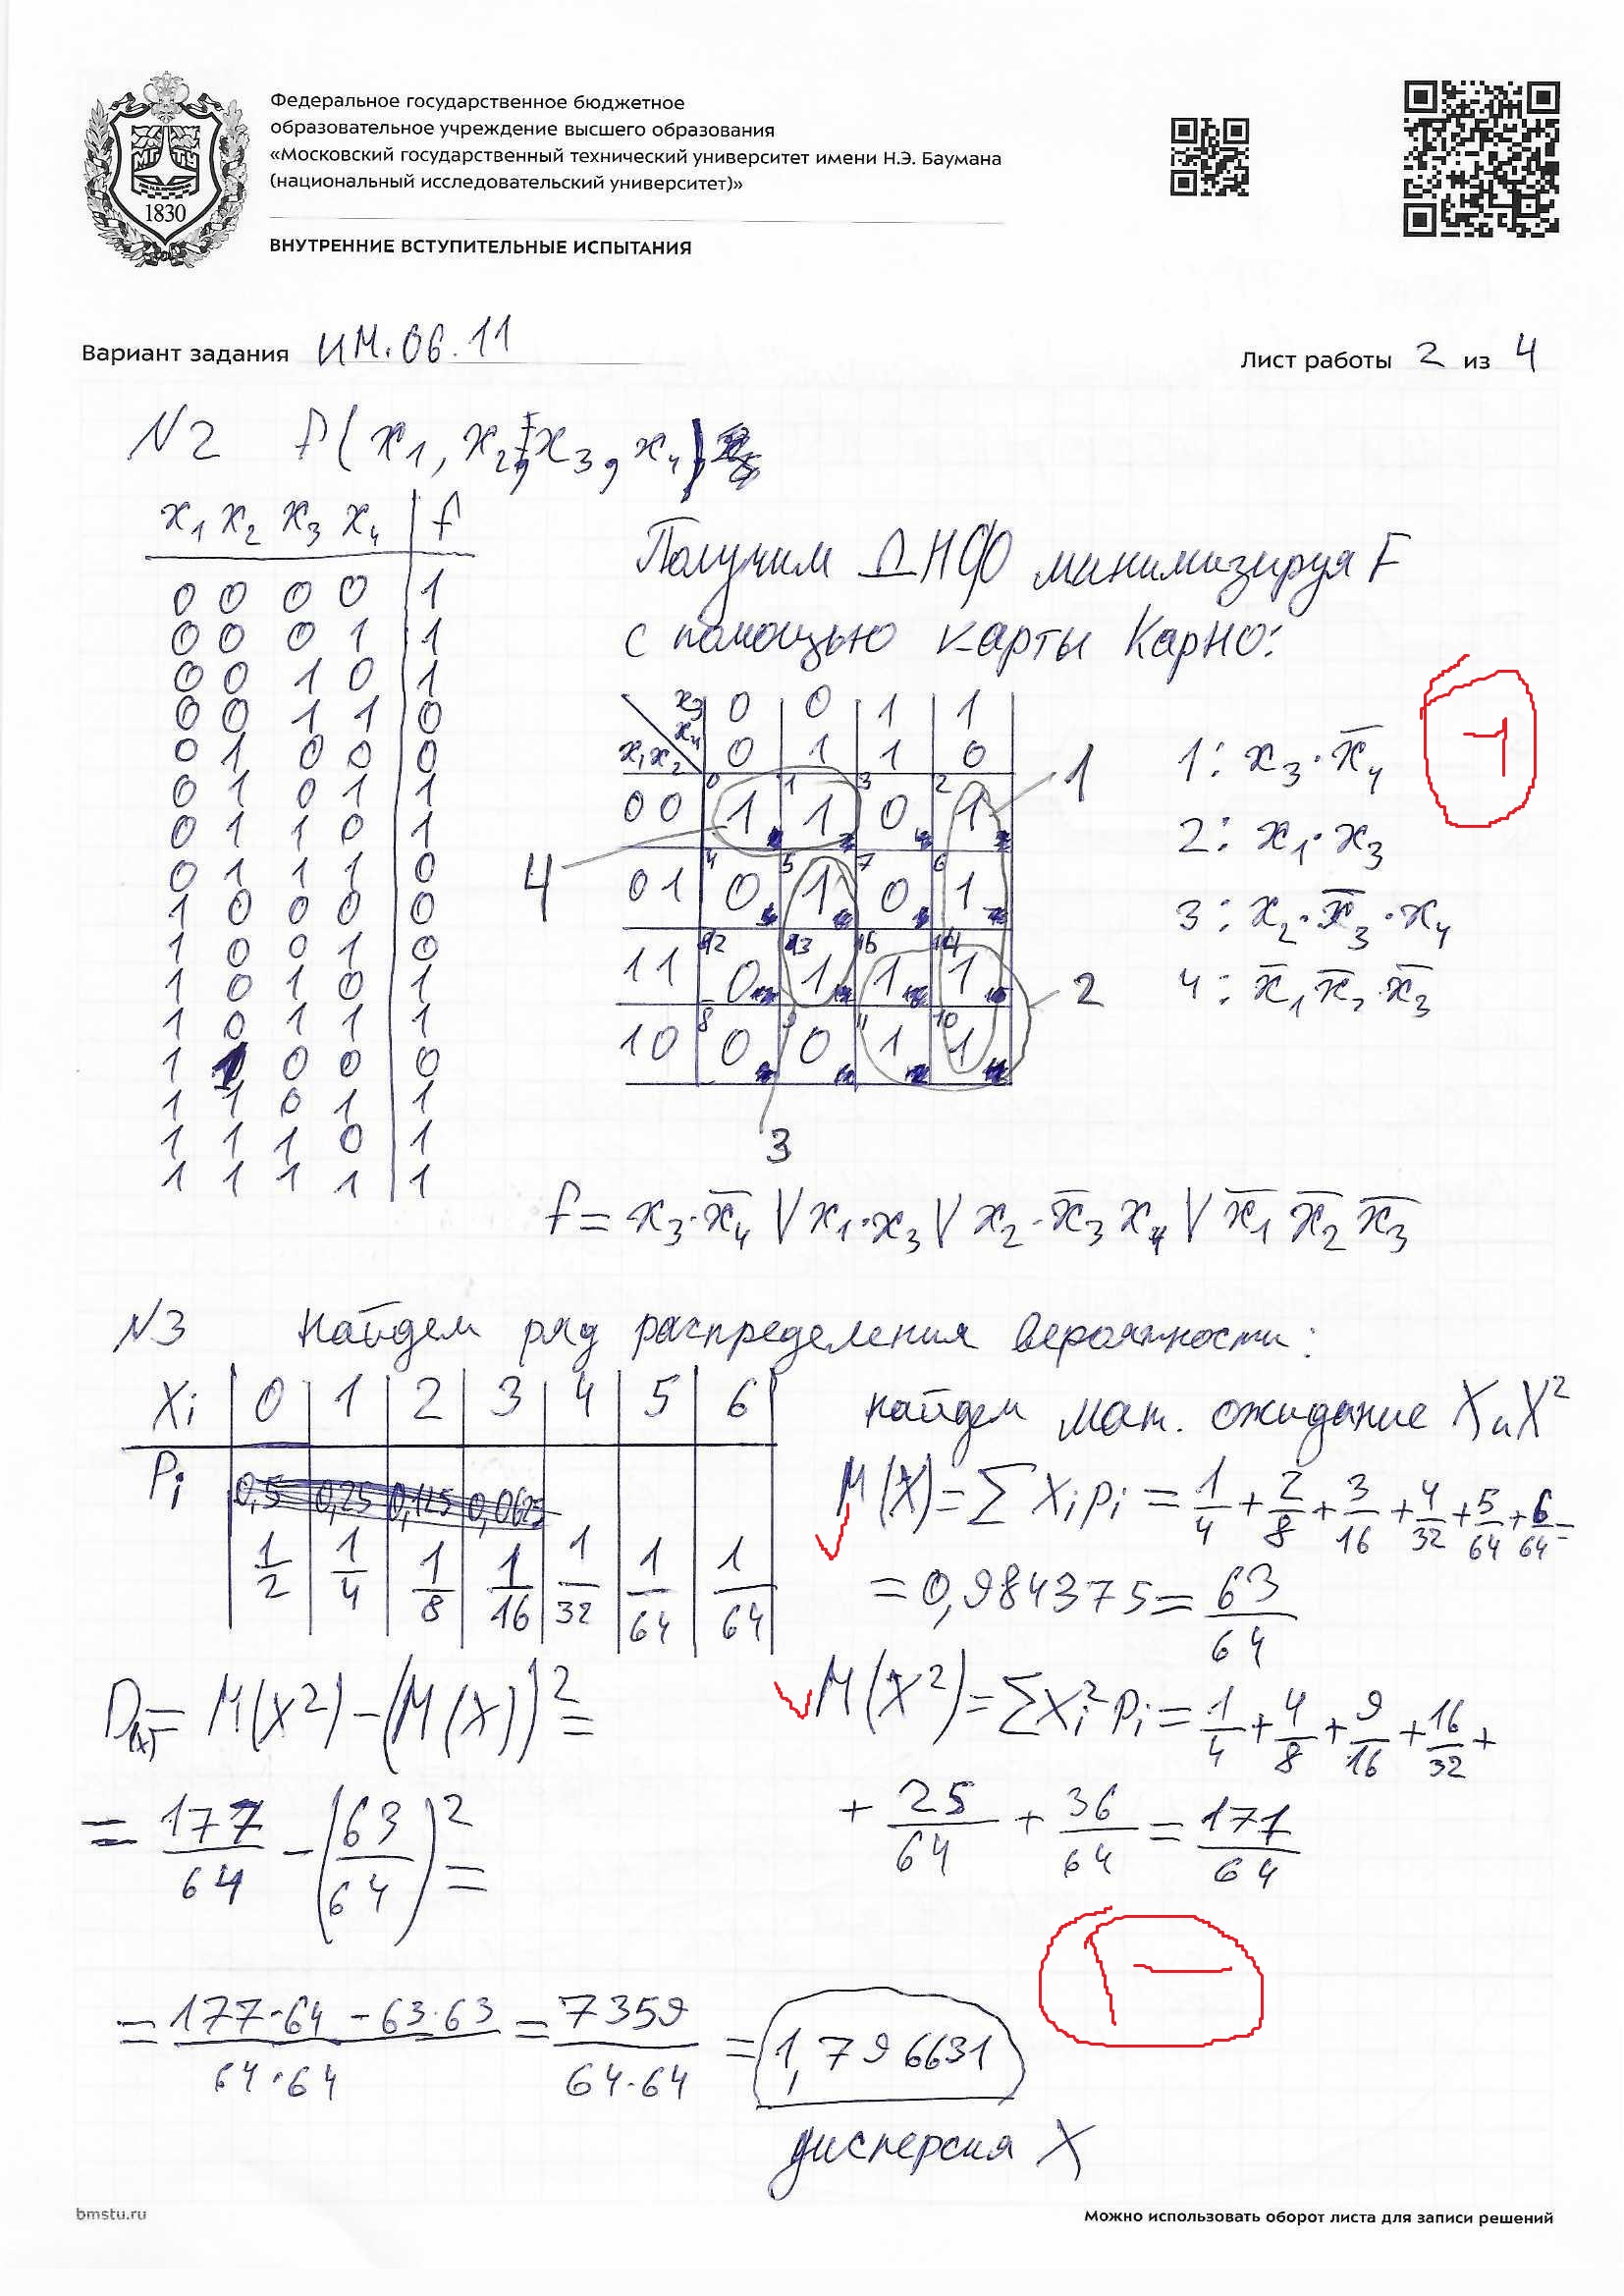 Федеральное государственное бюджетное
образовательное учреждение высшего образования
«Московский государственный технический университет имени Н.Э. Баумана
(национальный исследовательский университет)»
МГТУ
1830
ВНУТРЕННИЕ ВСТУПИТЕЛЬНЫЕ ИСПЫТАНИЯ
Вариант задания ИМ.06.11
Лист работы 2 из 4
N2 f(x₁, x₂, x₃, x₄)
x₁ x₂ x₃ x₄ | f
0 0 0 0 | 1
0 0 0 1 | 1
0 0 1 0 | 1
0 0 1 1 | 0
0 1 0 0 | 0
0 1 0 1 | 1
0 1 1 0 | 1
0 1 1 1 | 0
1 0 0 0 | 0
1 0 0 1 | 0
1 0 1 0 | 1
1 0 1 1 | 1
1 1 0 0 | 0
1 1 0 1 | 1
1 1 1 0 | 1
1 1 1 1 | 1
Получим ДНФ минимизируя F
с помощью карты Карно:
x₃ 0 0 1 1
x₄ 0 1 1 0
x₁x₂
0 1 3 2
00 1 1 0 1
4 5 7 6
01 0 1 0 1
12 13 15 14
11 0 1 1 1
8 9 11 10
10 0 0 1 1
1
2
3
4
1: x₃·x̅₄
2: x₁·x₃
3: x₂·x̅₃·x₄
4: x̅₁x̅₂·x̅₃
f = x₃·x̅₄ ∨ x₁·x₃ ∨ x₂·x̅₃x₄ ∨ x̅₁ x̅₂ x̅₃
N3 Найдем ряд распределения вероятности:
Xi | 0 | 1 | 2 | 3 | 4 | 5 | 6
Pi | 1/2 | 1/4 | 1/8 | 1/16 | 1/32 | 1/64 | 1/64
найдем мат. ожидание X и X²
M(X) = ∑ Xipi = 1/4 + 2/8 + 3/16 + 4/32 + 5/64 + 6/64 =
= 0,984375 = 63/64
M(X²) = ∑Xi²Pi = 1/4 + 4/8 + 9/16 + 16/32 +
+ 25/64 + 36/64 = 177/64
D(x) = M(X²) - (M(X))² =
= 177/64 - (63/64)² =
= (177·64 - 63·63)/(64·64) = 7359/(64·64) = 1,796631
дисперсия X
bmstu.ru
Можно использовать оборот листа для записи решений